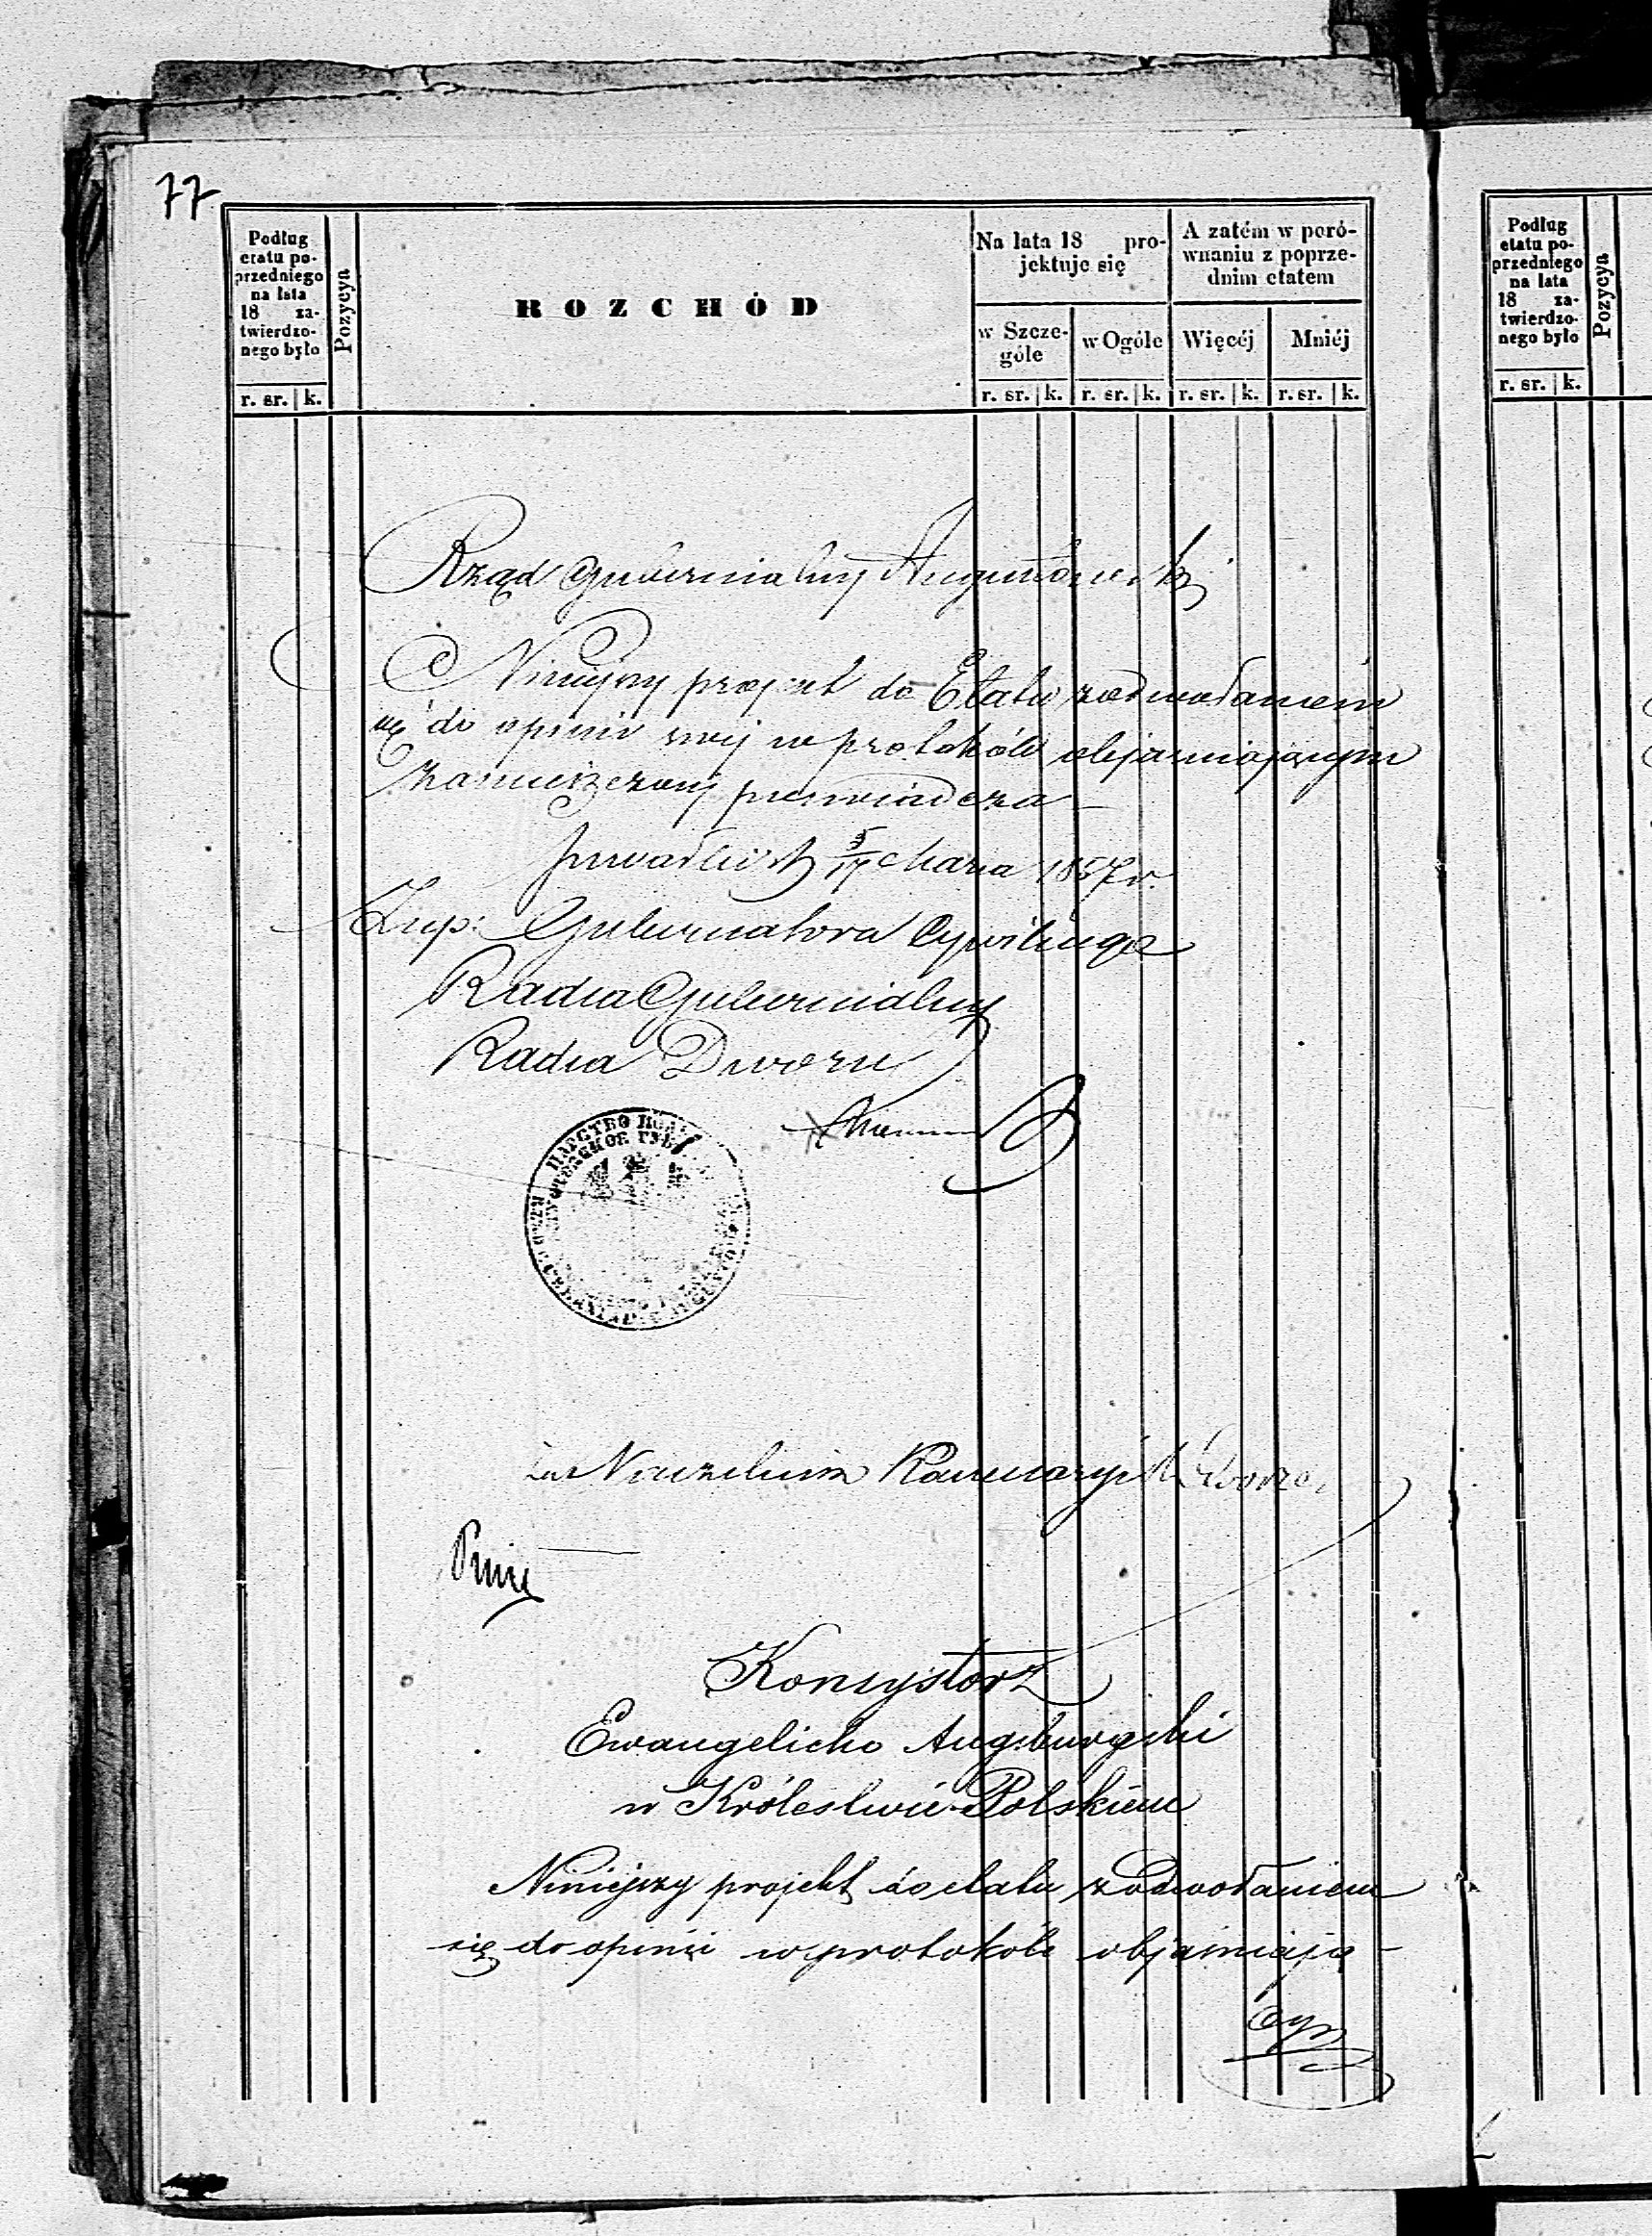 77
Podług
etatu po-
przedniego
na lata
18 za-
twierdzo-
nego było
r. sr. k.
Pozycya
ROZCHÓD
Na lata 18 pro-
jektuje się
w Szcze-
góle
w Ogóle
r. sr. k. r. sr. k.
A zatém w poró-
wnaniu z poprze-
dnim etatem
Więcéj
Mniéj
r. sr. k. r. sr. k.
Rząd Gubernialny Augustowski
Niniejszy projekt do Etatu z odwołaniem
się do opinii swej w protokóle objaśniającym
zamieszczonej poświadcza
Suwałki d. 5/17 Marca 1857 r.
Zup: Gubernatora Cywilnego
Radca Gubernialny
Radca Dworu
ЦАРСТВО
za Naczelnika Kancelaryi
Konsystorz
Ewangelicko Augsburgski
w Królestwie Polskiem
Niniejszy projekt do etatu z odwołaniem
się do opinii w protokóle objaśniają-
cym
Podług
etatu po-
przedniego
na lata
18 za-
twierdzo-
nego było
r. sr. k.
Pozycya